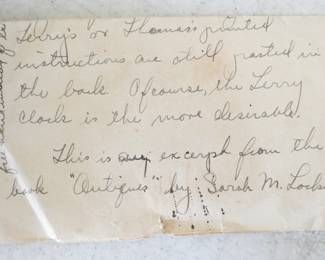 Terry's or Thomas's printed
instructions are still pasted in
the back. Ofcourse, the Terry
clock is the more desirable.
This is an excerph from the
book "Antiques" by Sarah M. Lock